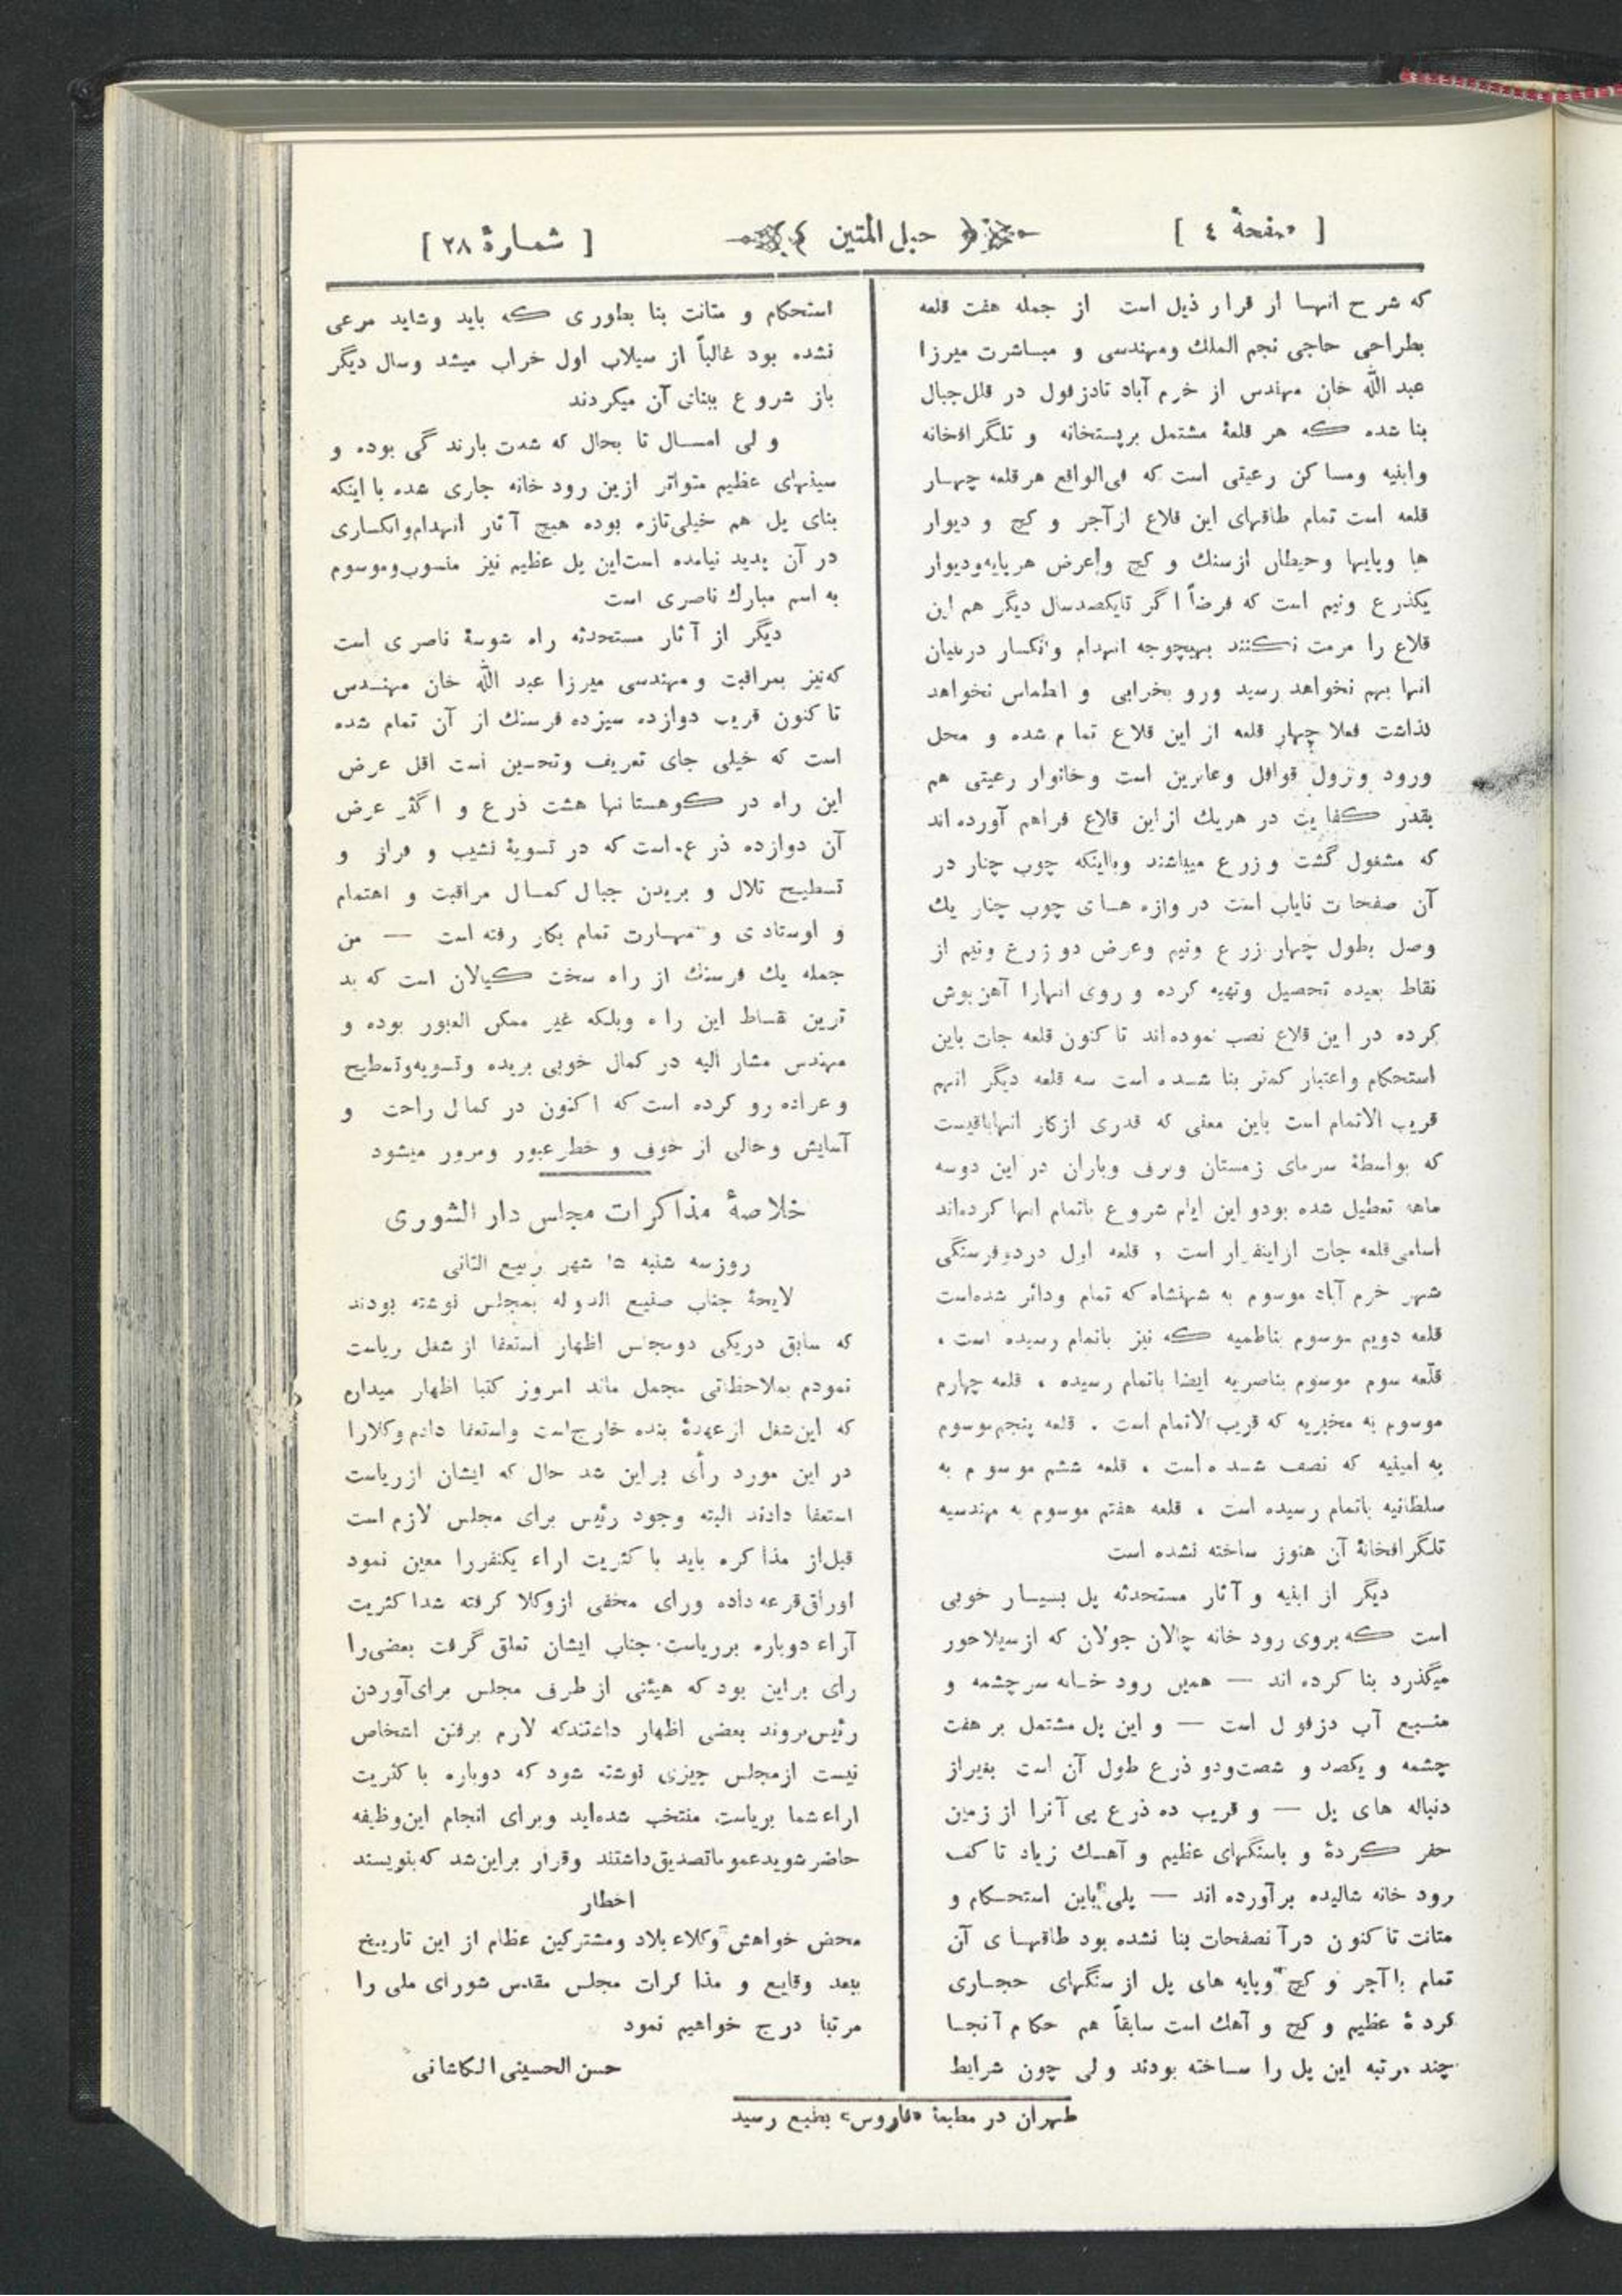 [ صفحهٔ ٤ ]
﴿ حبل المتین ﴾
[ شمارهٔ ٢٨ ]
که شرح انها از قرار ذیل است از جمله هفت قلعه
بطراحی حاجی نجم الملك ومهندسی و مباشرت میرزا
عبد الله خان مهندس از خرم آباد تادزفول در قلل جبال
بنا شده که هر قلعهٔ مشتمل برپستخانه و تلگرافخانه
وابنیه ومساکن رعیتی است که فی‌الواقع هر قلعه چهار
قلعه است تمام طاقهای این قلاع ازآجر و کچ و دیوار
ها وپایها وحیطان ازسنك و کچ واعرض هرپایه‌ودیوار
یکذرع ونیم است که فرضاً اگر تایکصدسال دیگر هم این
قلاع را مرمت نکنند بهیچوجه انهدام وانکسار درمیان
انها بهم نخواهد رسید ورو بخرابی و انطماس نخواهد
گذاشت فعلا چهار قلعه از این قلاع تمام شده و محل
ورود ونزول قوافل وعابرین است وخانوار رعیتی هم
بقدر کفایت در هریك ازاین قلاع فراهم آورده اند
که مشغول گشت وزرع میباشند وبااینکه چوب چنار در
آن صفحات نایاب است دروازه های چوب چنار یك
وصل بطول چهار زرع ونیم وعرض دو زرع ونیم از
نقاط بعیده تحصیل وتهیه کرده و روی انهارا آهن پوش
کرده در این قلاع نصب نموده‌اند تا کنون قلعه جات باین
استحکام واعتبار کمتر بنا شده است سه قلعه دیگر انهم
قریب الاتمام است باین معنی که قدری ازکار انهاباقیست
که بواسطهٔ سرمای زمستان وبرف وباران در این دوسه
ماهه تعطیل شده بودو این ایام شروع باتمام انها کرده‌اند
اسامی قلعه جات ازاینقرار است ، قلعه اول دردوفرسنگی
شهر خرم آباد موسوم به شهنشاه که تمام ودائر شده‌است
قلعه دویم موسوم بناظمیه که نیز باتمام رسیده است ،
قلعه سوم موسوم بناصریه ایضا باتمام رسیده ، قلعه چهارم
موسوم به مخبریه که قریب الاتمام است . قلعه پنجم‌موسوم
به امینیه که نصف شده است ، قلعه ششم موسوم به
سلطانیه باتمام رسیده است ، قلعه هفتم موسوم به مهندسیه
تلگرافخانهٔ آن هنوز ساخته نشده است
دیگر از ابنیه و آثار مستحدثه پل بسیار خوبی
است که بروی رود خانه چالان جولان که ازسیلاخور
میگذرد بنا کرده اند — همین رود خانه سرچشمه و
منبع آب دزفول است — و این پل مشتمل بر هفت
چشمه و یکصد و شصت‌ودو ذرع طول آن است بغیراز
دنباله های پل — و قریب ده ذرع پی آنرا از زمین
حفر کردهٔ و باسنگهای عظیم و آهك زیاد تا کف
رود خانه شالیده برآورده اند — پلی باین استحکام و
متانت تاکنون درآنصفحات بنا نشده بود طاقهای آن
تمام باآجر و کچ وپایه های پل از سنگهای حجاری
کردهٔ عظیم و کچ و آهك است سابقاً هم حکام آنجا
چند مرتبه این پل را ساخته بودند ولی چون شرایط
استحکام و متانت بنا بطوری که باید وشاید مرعی
نشده بود غالباً از سیلاب اول خراب میشد وسال دیگر
باز شروع ببنای آن میکردند
ولی امسال تا بحال که شدت بارندگی بوده و
سیلهای عظیم متواتر ازین رود خانه جاری شده با اینکه
بنای پل هم خیلی‌تازه بوده هیچ آثار انهدام‌وانکساری
در آن پدید نیامده است‌این پل عظیم نیز منسوب‌وموسوم
به اسم مبارك ناصری است
دیگر از آثار مستحدثه راه شوسهٔ ناصری است
که‌نیز بمراقبت ومهندسی میرزا عبد الله خان مهندس
تاکنون قریب دوازده سیزده فرسنك از آن تمام شده
است که خیلی جای تعریف وتحسین است اقل عرض
این راه در کوهستانها هشت ذرع و اکثر عرض
آن دوازده ذرع‌است که در تسویهٔ نشیب و فراز و
تسطیح تلال و بریدن جبال کمال مراقبت و اهتمام
و اوستادی و مهارت تمام بکار رفته است — من
جمله یك فرسنك از راه سخت کیالان است که بد
ترین نقاط این راه وبلکه غیر ممکن العبور بوده و
مهندس مشار الیه در کمال خوبی بریده وتسویه‌وتسطیح
وعراده رو کرده است که اکنون در کمال راحت و
آسایش وخالی از خوف و خطر عبور ومرور میشود
خلاصهٔ مذاکرات مجلس دار الشوری
روزسه شنبه ١٥ شهر ربیع الثانی
لایحهٔ جناب صنیع الدوله بمجلس نوشته بودند
که سابق دریکی دومجلس اظهار استعفا از شغل ریاست
نمودم بملاحظاتی مجمل ماند امروز کتبا اظهار میدارم
که این‌شغل ازعهدهٔ بنده خارج‌است واستعفا دادم وکلارا
در این مورد رأی براین شد حال که ایشان ازریاست
استعفا دادند البته وجود رئیس برای مجلس لازم است
قبل‌از مذاکره باید باکثریت اراء یکنفررا معین نمود
اوراق‌قرعه داده ورای مخفی ازوکلا گرفته شداکثریت
آراء دوباره برریاست جناب ایشان تعلق گرفت بعضی‌را
رای براین بود که هیئتی از طرف مجلس برای‌آوردن
رئیس‌بروند بعضی اظهار داشتندکه لازم برفتن اشخاص
نیست ازمجلس چیزی نوشته شود که دوباره باکثریت
اراءشما بریاست منتخب شده‌اید وبرای انجام این‌وظیفه
حاضر شویدعموماتصدیق‌داشتند وقرار براین‌شد که‌بنویسند
اخطار
محض خواهش وکلاء بلاد ومشترکین عظام از این تاریخ
ببعد وقایع و مذاکرات مجلس مقدس شورای ملی را
مرتبا درج خواهیم نمود
حسن الحسینی الکاشانی
طهران در مطبعهٔ «فاروس» بطبع رسید